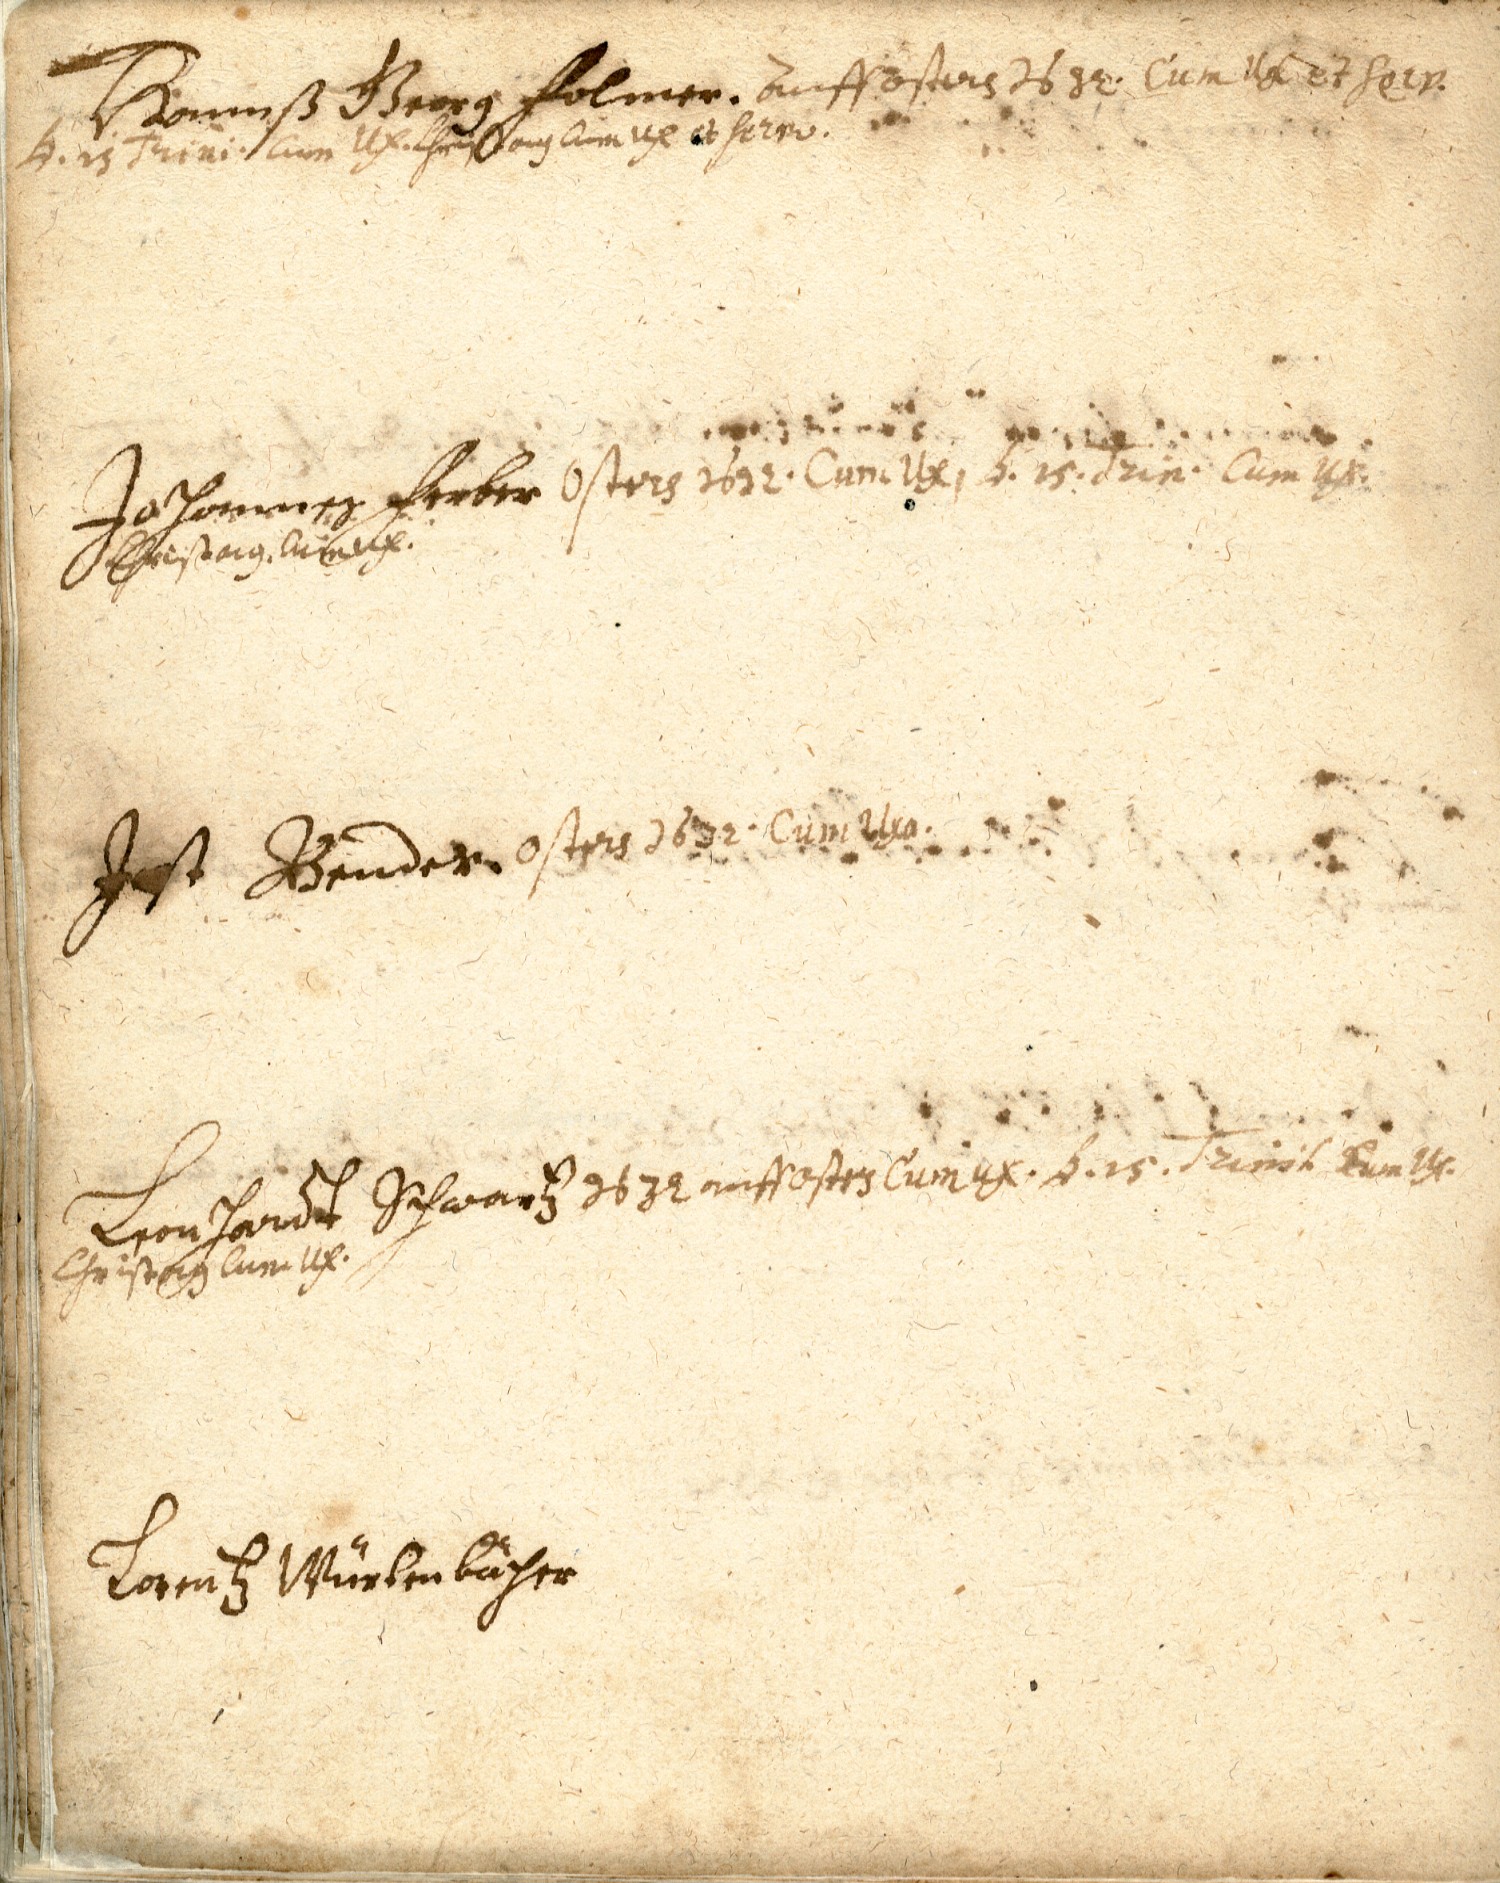 Hannß Georg Folmer. auff Ostern 1632. Cum Ux et serv.
D. 15 Trini. Cum Ux. Christag Cum Ux et serv.
Johannes Ferber Ostern 1632. Cum Ux, D. 15. Trin. Cum Ux.
Christag. Cum Ux.
Jost Bender. Ostern 1632. Cum Uxo.
Leonhardt Schwartz 1632 auff Ostern Cum Ux. D. 15. Trinit. Cum Ux.
Christag Cum Ux.
Lorentz Würtenbächer